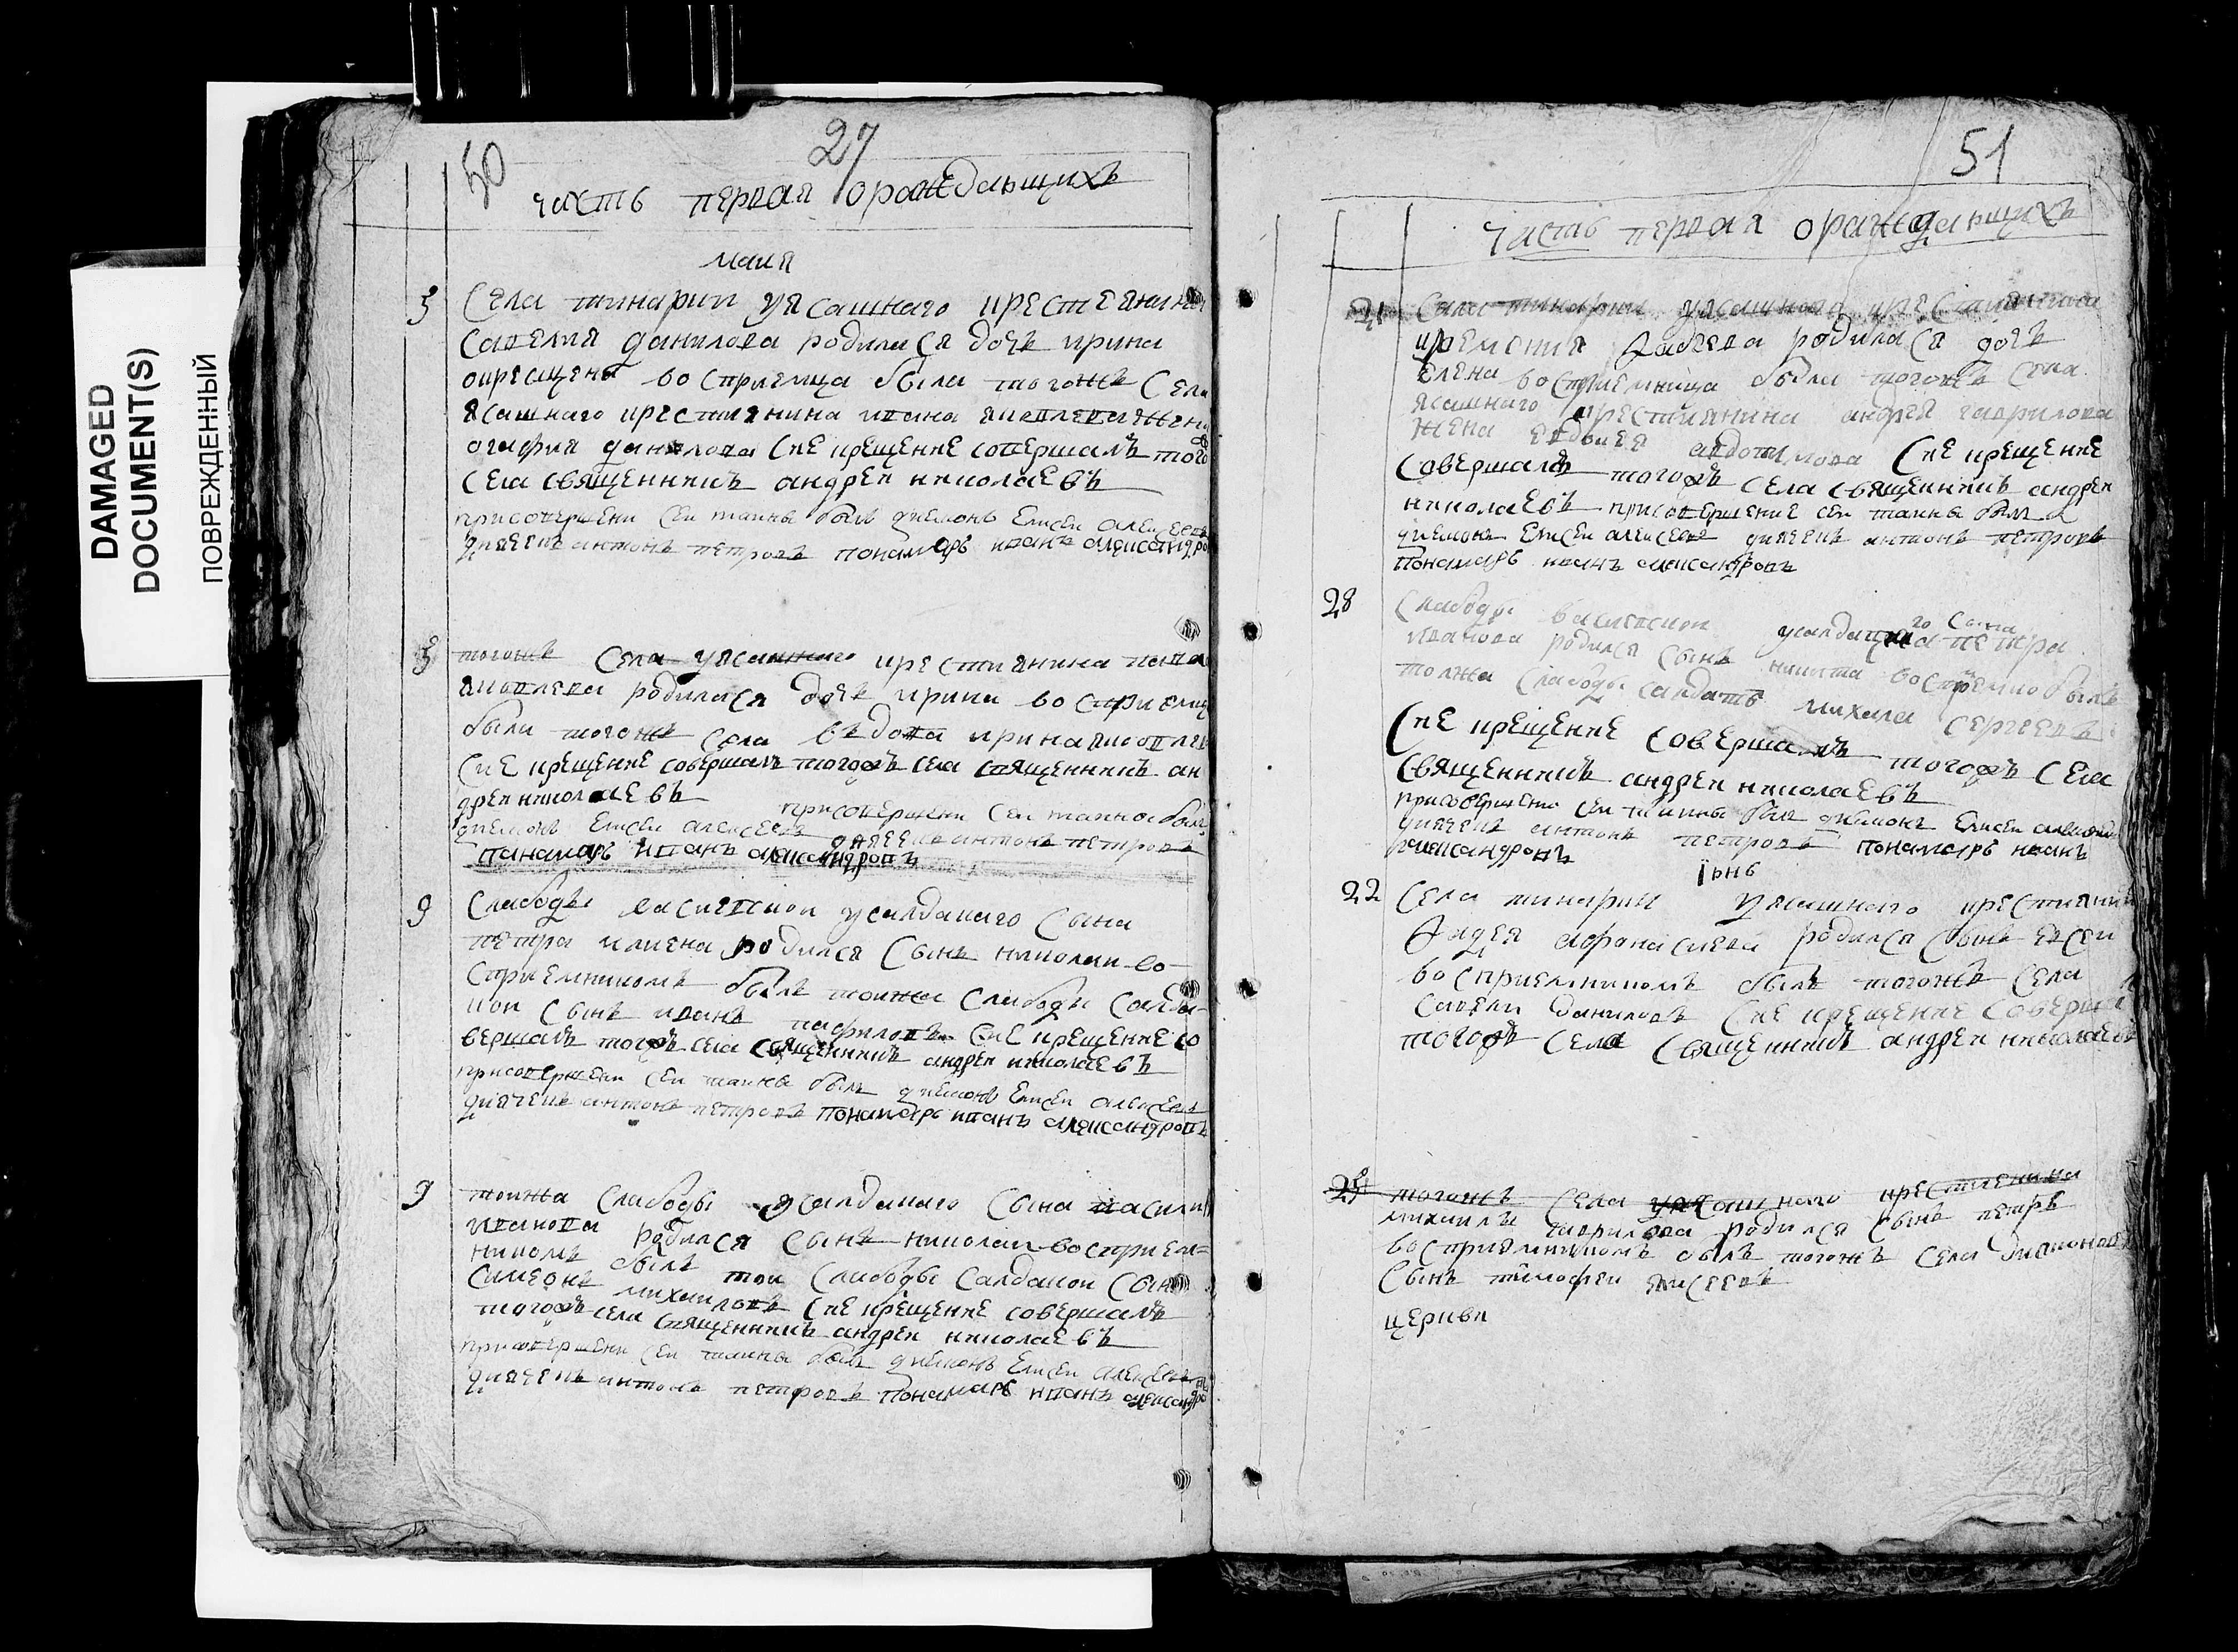 DAMAGED
DOCUMENT(S)
ПОВРЕЖДЕННЫЙ
50
27
часть первая ораждающихъ
маия
5
Села тинарии уясашнаго крестеянина
Савелия данилова родилася дочь ирина
окрещена воприемница была тогожъ Села
ясашнаго крестиянина ивана яковлева жена
агафия данилова Сие крещение совершалъ того
села священникъ андреи николаевъ
присовершени сеи таины былъ диаконъ Елисеи алексеевъ
диячекъ антонъ петровъ понамарь иванъ александро
5
тогожъ Села уясашнаго крестиянина
яковлева родилася дочь ирина во сприемница
была тогожъ села вдова ирина яковлева
Сие крещение совершалъ тогожъ села священникъ ан
дреи николаевъ присовершени сеи таины былъ
диаконъ Елисеи алексеевъ диячекъ антонъ петровъ
панамарь иванъ александровъ
9
Слабоды васильевскои усалдацкаго Сына
петра родился Сынъ николаи во
сприемникомъ былъ тоижа слабоды салда
кои Сынъ иванъ Сие крещение со
вершалъ тогожъ села священникъ андреи николаевъ
присовершени сеи таины былъ диаконъ Елисеи алексеевъ
диячекъ антонъ петровъ понамарь иванъ александровъ
9
тоижа Слабоды усалдацкаго Сына васили
иванова родился Сынъ николаи восприем=
никомъ былъ тои Слабоды Салдацкои Сынъ
Симеонъ михаиловъ Сие крещение совершалъ
тогожъ села священникъ андреи николаевъ
присовершени сеи таины былъ диаконъ Елисеи алексеевъ
диячекъ антонъ петровъ понамарь иванъ александро
51
часть первая ораждающихъ
21
Села тинарии уясашнаго крестиянина
родилася дочь
Елена восприемница была тогожъ Села
ясашнаго крестиянина андрея гаврилова
жена Сие крещение
совершалъ тогожъ села священникъ андреи
николаевъ присовершение сеи таины былъ
диаконъ Елисеи алексеевъ диячекъ антонъ петровъ
понамарь иванъ александровъ
28
Слабоды усалдацкаго Сына петра
иванова родился Сынъ никита восприемникъ былъ
тоижа Слабоды салдатъ михаила Сергеевъ
Сие крещение совершалъ тогожъ села
священникъ андреи николаевъ
присовершени сеи таины былъ диаконъ Елисеи
диячекъ антонъ петровъ понамарь иванъ
александровъ
июнь
22
Села тинарии уясашнаго крестиянина
Фадея афанасиева родился Сынъ
восприемникомъ былъ тогожъ Села
Савели даниловъ Сие крещение соверша
тогожъ Села Священникъ андреи николаевъ
25
тогожъ Села уясашнаго крестиянина
михаилы гаврилова родился Сынъ петръ
восприемникомъ былъ тогожъ Села диаконовъ
Сынъ тимофеи Елисеевъ
церкви